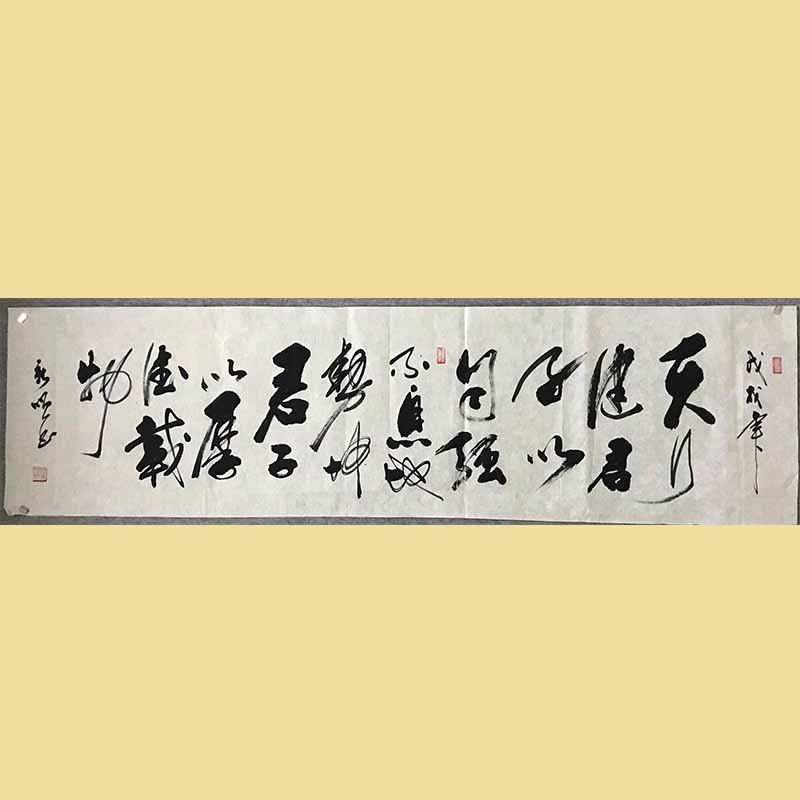 戊戌年
天行
健君
子以
自强
不息地
勢坤
君子
以厚
德載
物